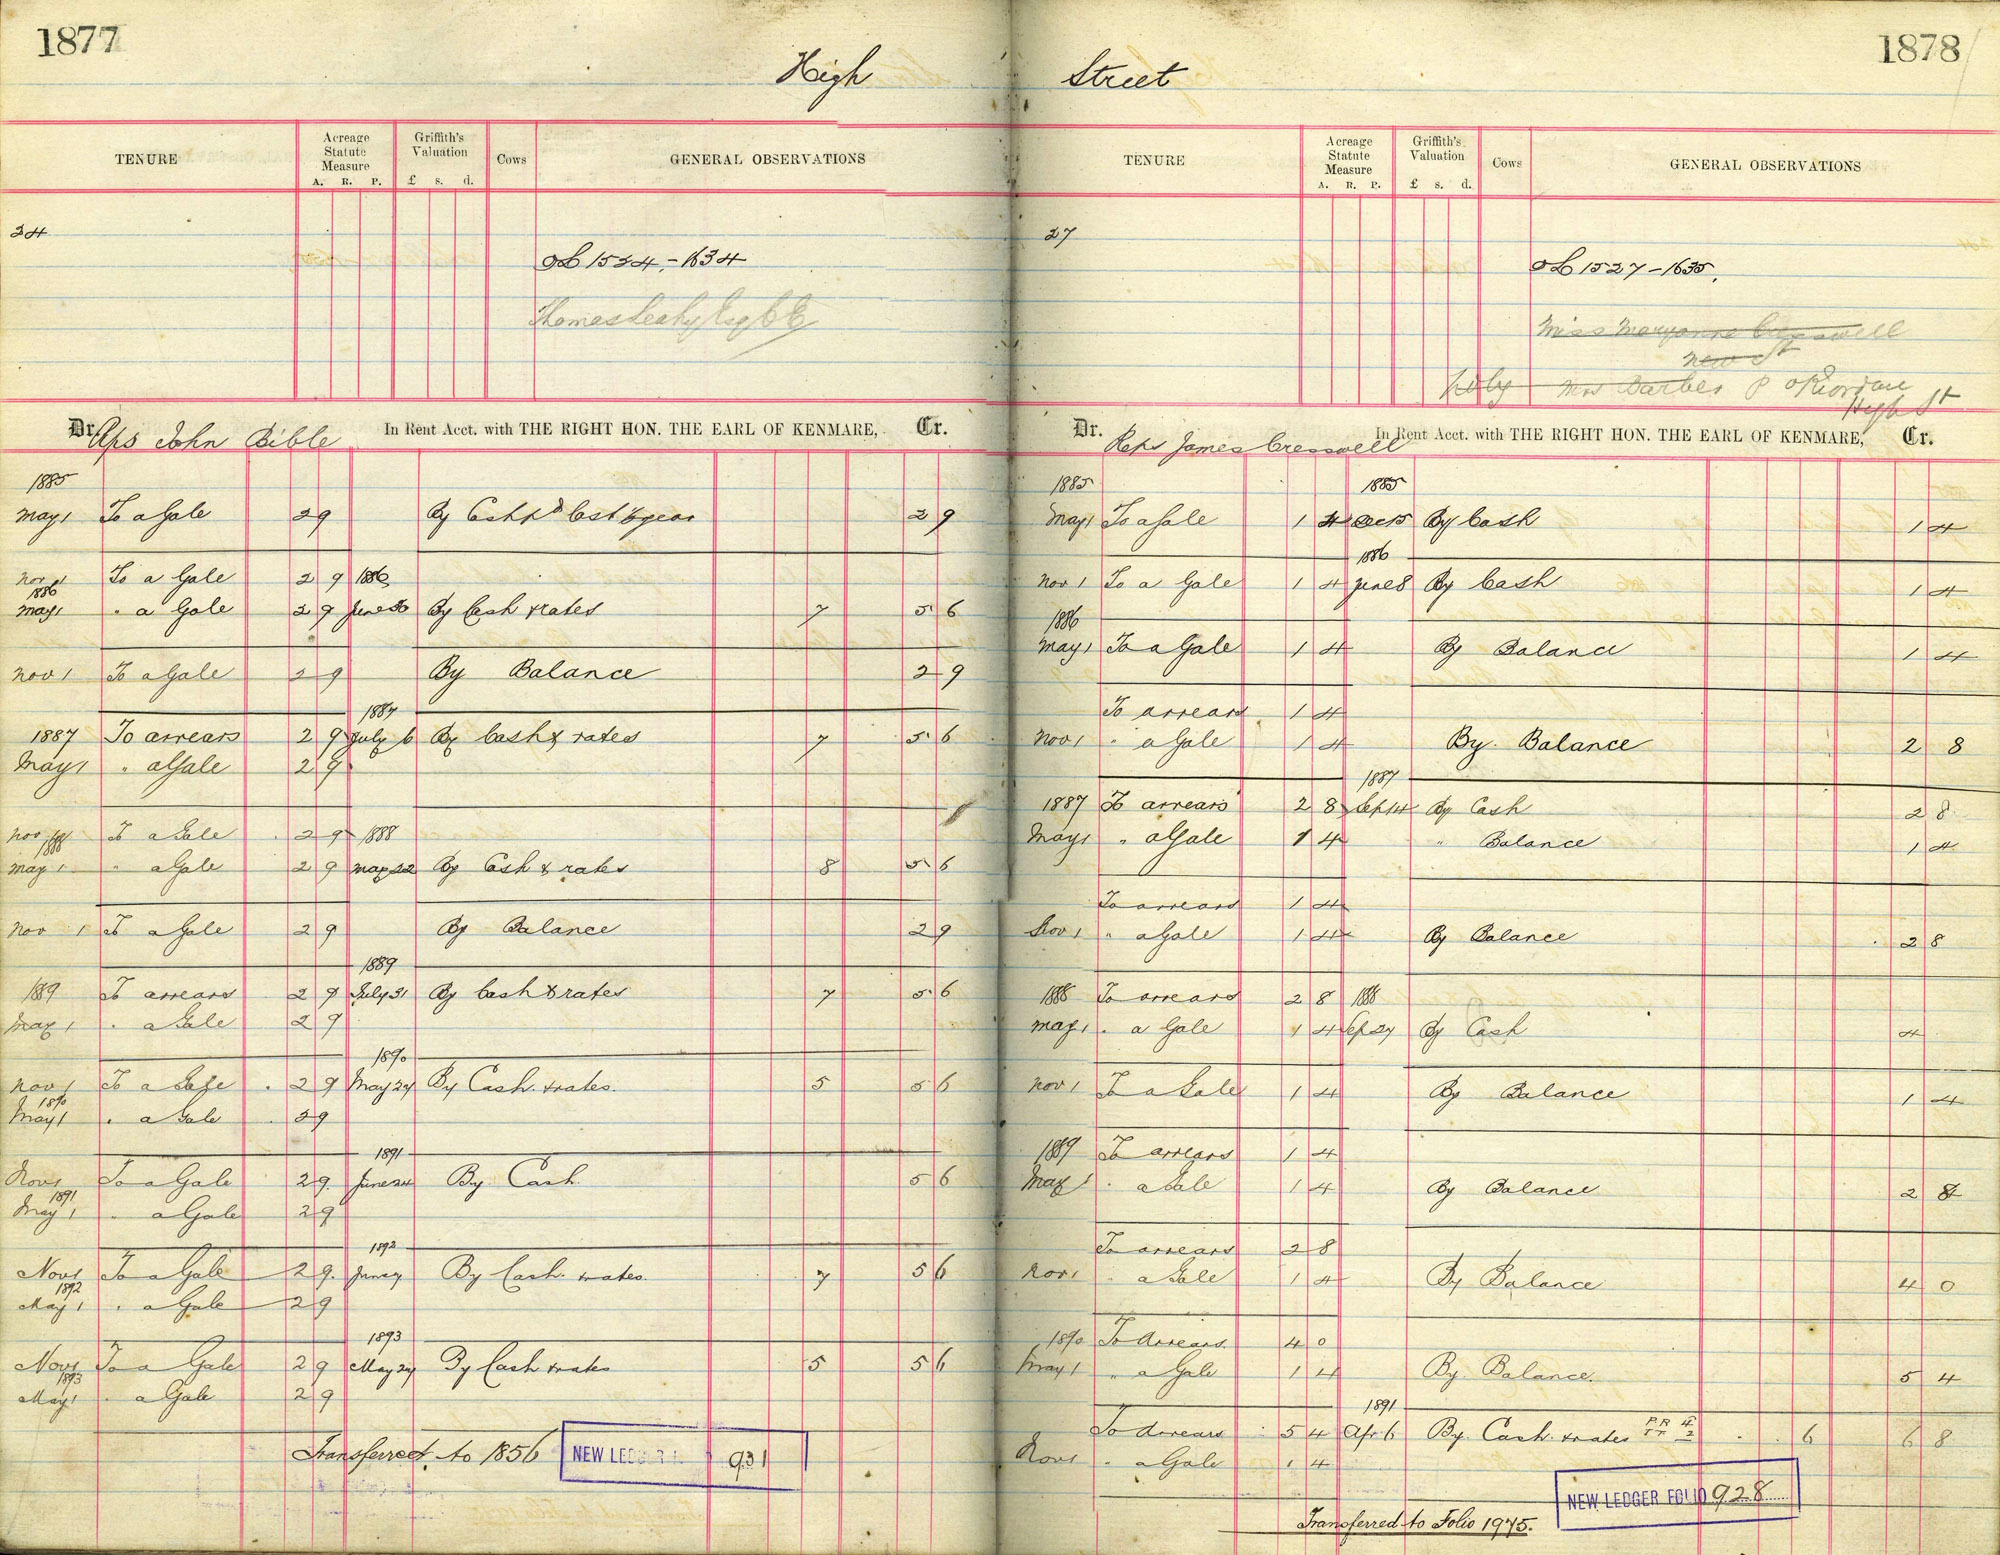 1877
High Street
1878
TENURE
Acreage Statute Measure
A. R. P.
Griffith's Valuation
£ s. d.
Cows
GENERAL OBSERVATIONS
24
OL 1524 - 1634
Thomas Leahy Esq CE
Dr. Aps John Bible In Rent Acct. with THE RIGHT HON. THE EARL OF KENMARE, Cr.
1885
May 1 To a Gale 2 9 By Cash pd last ½ year 2 9
Nov 1 To a Gale 2 9 1886
1886
May 1 " a Gale 2 9 June 30 By Cash & rates 7 5 6
Nov 1 To a Gale 2 9 By Balance 2 9
1887
1887 To arrears 2 9 July 6 By Cash & rates 7 5 6
May 1 " a Gale 2 9
Nov 1 To a Gale 2 9 1888
1888
May 1 " a Gale 2 9 May 22 By Cash & rates 8 5 6
Nov 1 To a Gale 2 9 By Balance 2 9
1889
1889 To arrears 2 9 July 31 By Cash & rates 7 5 6
May 1 " a Gale 2 9
1890
Nov 1 To a Gale 2 9 May 24 By Cash & rates. 5 5 6
1890
May 1 " a Gale 2 9
1891
Nov 1 To a Gale 2 9 June 24 By Cash 5 6
1891
May 1 " a Gale 2 9
1892
Nov 1 To a Gale 2 9 June 7 By Cash & rates. 7 5 6
1892
May 1 " a Gale 2 9
1893
Nov 1 To a Gale 2 9 May 24 By Cash & rates 5 5 6
1893
May 1 " a Gale 2 9
Transferred to 1856 NEW LEDGER 931
TENURE
Acreage Statute Measure
A. R. P.
Griffith's Valuation
£ s. d.
Cows
GENERAL OBSERVATIONS
27
OL 1527 - 1635.
Miss Maryanne Cresswell
New St
Mrs Barbes P O'Riordan
High St
Dr. Reps James Cresswell In Rent Acct. with THE RIGHT HON. THE EARL OF KENMARE, Cr.
1885 1885
May 1 To a Gale 1 4 Dec 15 By Cash 1 4
1886
Nov 1 To a Gale 1 4 June 8 By Cash 1 4
1886
May 1 To a Gale 1 4 By Balance 1 4
To arrears 1 4
Nov 1 " a Gale 1 4 By Balance 2 8
1887
1887 To arrears 2 8 Sep 14 By Cash 2 8
May 1 " a Gale 1 4 " Balance 1 4
To arrears 1 4
Nov 1 " a Gale 1 4 By Balance 2 8
1888 To arrears 2 8 1888
May 1 " a Gale 1 4 Sep 27 By Cash 4
Nov 1 To a Gale 1 4 By Balance 1 4
1889 To arrears 1 4
May 1 " a Gale 1 4 By Balance 2 8
To arrears 2 8
Nov 1 " a Gale 1 4 By Balance 4 0
1890 To Arrears 4 0
May 1 " a Gale 1 4 By Balance. 5 4
1891
To Arrears 5 4 Apr 6 By Cash & rates 6 6 8
Nov 1 " a Gale 1 4
NEW LEDGER FOLIO 928
Transferred to Folio 1975.